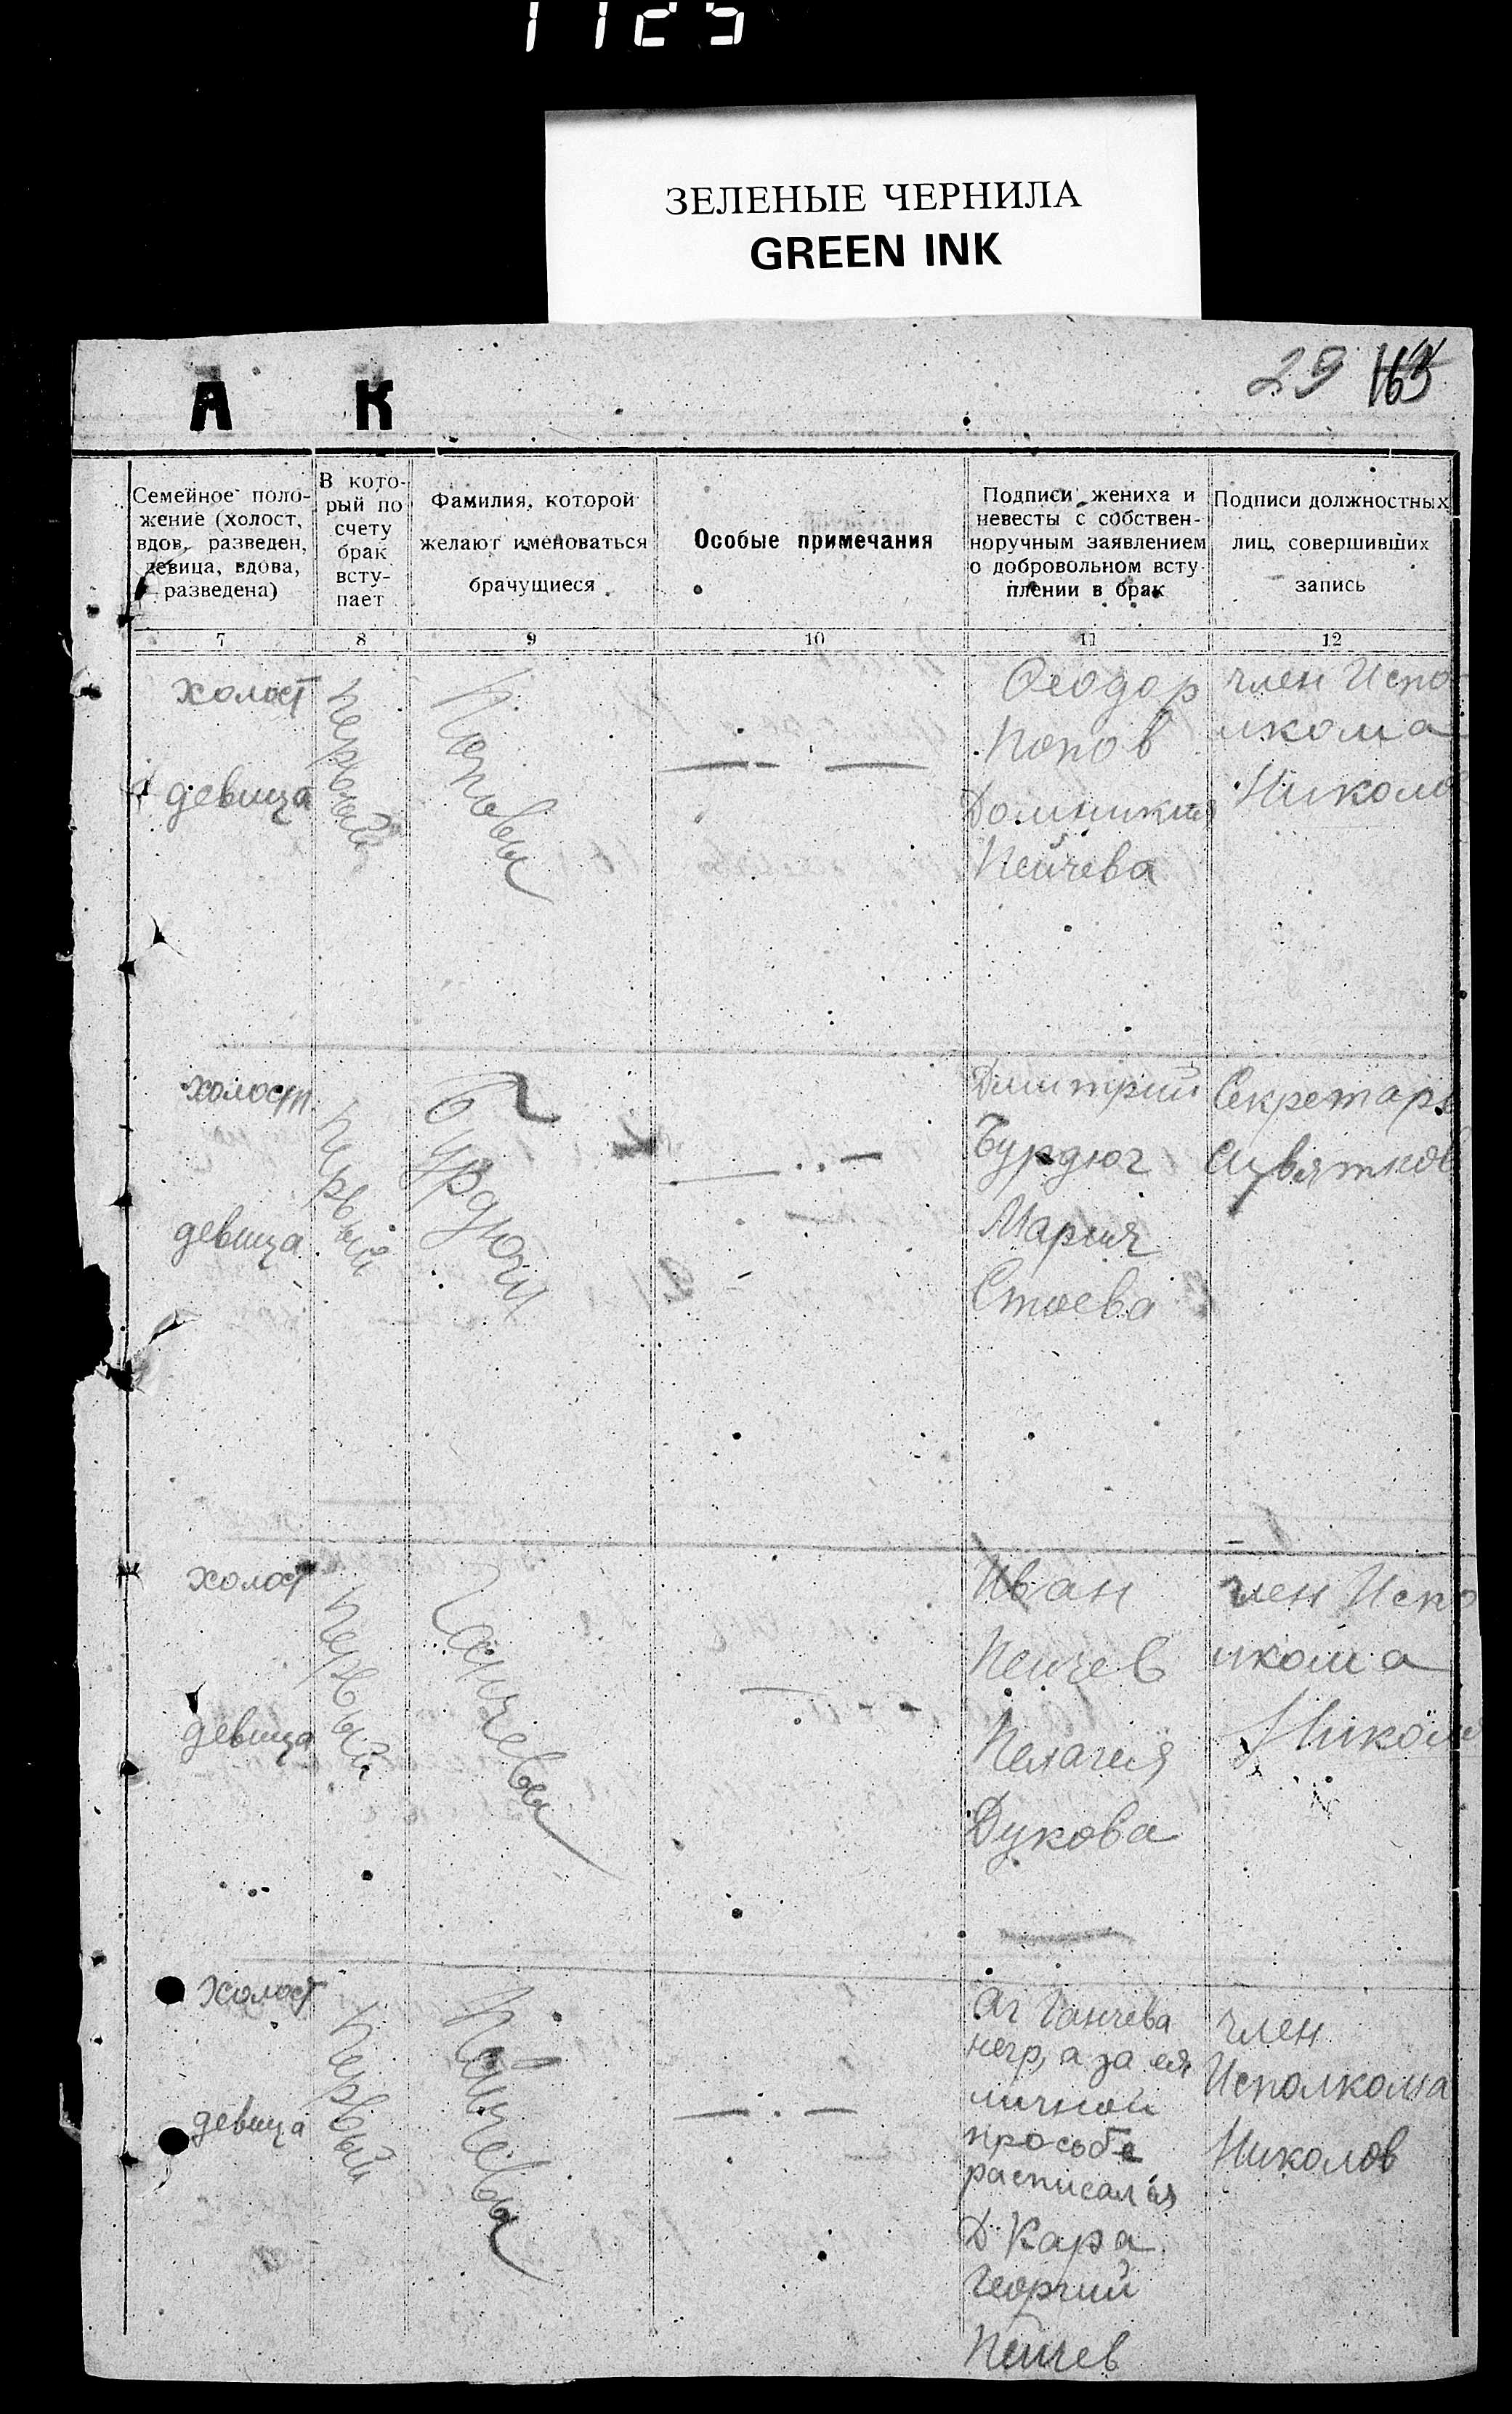 1125
ЗЕЛЕНЫЕ ЧЕРНИЛА
GREEN INK
29 163
А К
Семейное поло-
жение (холост,
вдов, разведен,
девица, вдова,
разведена)
В кото-
рый по
счету
брак
всту-
пает
Фамилия, которой
желают именоваться
брачущиеся
Особые примечания
Подписи жениха и
невесты с собствен-
норучным заявлением
о добровольном всту-
плении в брак
Подписи должностных
лиц, совершивших
запись
7 8 9 10 11 12
холост
девица
первый
Поповы
Феодор
Попов
Домникия
Пейчева
член Испо
лкома
Николо
холост
девица
первый
Бурдюги
Димитрий
Бурдюг
Мария
Стоева
Секретарь
холост
девица
первый
Иван
Пейчев
Пелагея
Дукова
член Испо
лкома
Никол
холост
девица
первый
Пейчевы
Аг Ганчева
негр, а за ея
личной
просьбе
расписался
Д Кара
Георгий
Пейчев
член
Исполкома
Николов